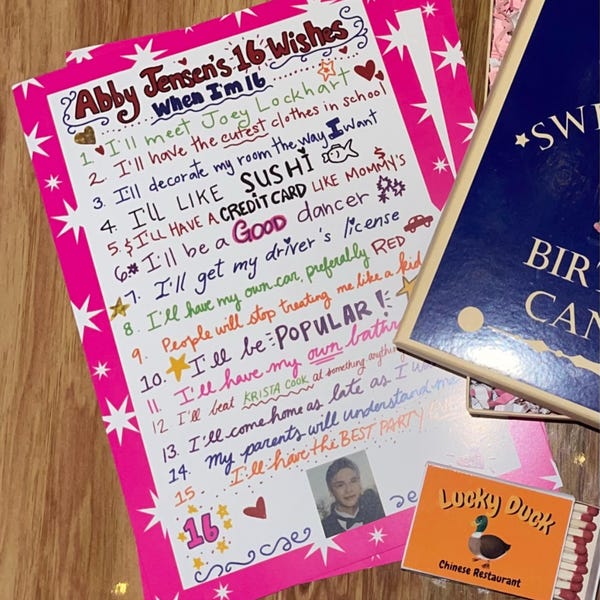 Abby Jensen's 16 Wishes
When I'm 16
1. I'll meet Joey Lockhart
2. I'll have the cutest clothes in school
3. I'll decorate my room the way I want
4. I'LL LIKE SUSHI
5. $ I'LL HAVE A CREDIT CARD LIKE MOMMY'S
6. I'll be a GOOD dancer
7. I'll get my driver's license
8. I'll have my own car, preferably RED
9. People will stop treating me like a kid
10. I'll be POPULAR!
11. I'll have my own
12. I'll beat KRISTA COOK at something
13. I'll come home as late as I
14. My parents will understand me
15. I'll have the BEST PARTY
16
BIR
CAN
Lucky Duck
Chinese Restaurant